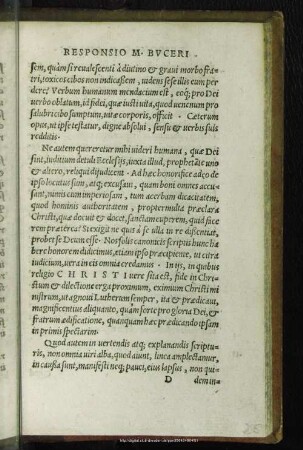 RESPONSIO M. BVCERI
sem, quàm si reualescenti à diutino & graui morbo fra-
tri, toxicos cibos non indicassem, uidens sese illis eum per
dere? Verbum humanum mendacium est, eoq; pro Dei
uerbo oblatum, id fidei, quæ iusti uita, quod uenenum pro
salubri cibo sumptum, uitæ corporis, officit. Cæterum
opus, ut ipse testatur, digne absolui, sensu & uerbis suis
redditis.
Ne autem quereretur mihi uideri humana, quæ Dei
sint, iudicium detuli Ecclesijs, iuxta illud, prophetæ uno
& altero, reliqui dijudicent. Ad hæc honorifice adeo de
ipso locutus sum, atq; excusaui, quam boni omnes accu-
sant, nimis cum imperiosam, tum acerbam dicacitatem,
quod hominis autoritatem, propter multa præclara
Christi, quæ docuit & docet, sanctam cuperem, quid face
rem præterea? Si exigit ne quis à se ulla in re dissentiat,
probet se Deum esse. Nos solis canonicis scriptis hunc ha
bere honorem didicimus, etiam ipso præcipiente, ut citra
iudicium, uera in eis omnia credamus. In ijs, in quibus
religio CHRISTI uere sita est, fide in Chri-
stum & dilectione erga proximum, eximium Christi mi
nistrum, ut agnoui Lutherum semper, ita & prædicaui,
magnificentius aliquanto, quàm forte pro gloria Dei, &
fratrum ædificatione, quanquam hæc prædicando ipsam
in primis spectarim.
Quod autem in uertendis atq; explanandis scriptu-
ris, non omnia uiri alba, quod aiunt, linea amplectamur,
in caussa sunt, manifesti neq; pauci, eius lapsus, non qui-
D dem in-